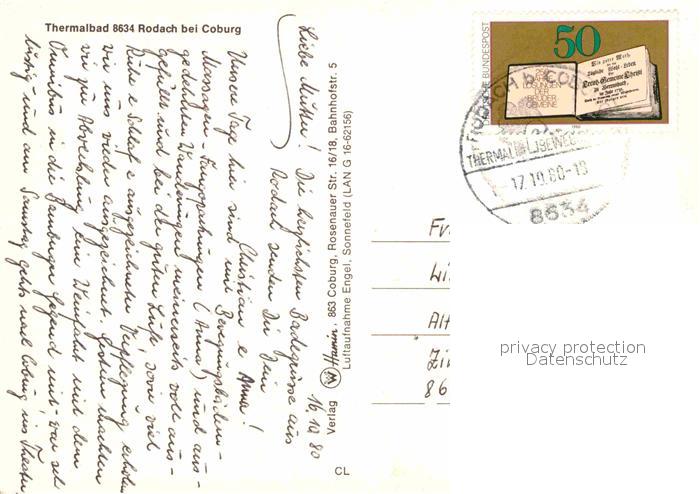 Thermalbad 8634 Rodach bei Coburg
16.10.80
Liebe Mutter! Die herzlichsten Badegrüsse aus
Rodach senden Dir Dein
Christian e Anna!
Unsere Tage hier sind mit Bewegungsbädern -
Massagen - Fangopackungen (Anna) und aus-
gedehnten Wanderungen meinerseits voll aus-
gefüllt und bei der guten Luft, sowie viel
Ruhe e Schlaf e ausgezeichneter Verpflegung erholen
wir uns wieder ausgezeichnet. Gestern machten
wir zur Abwechslung eine Weinfahrt mit dem
Omnibus in die Bamberger Gegend mit - war sehr
lustig - und am Samstag gehts nach Coburg ins Theater
Verlag
863 Coburg, Rosenauer Str. 16/18, Bahnhofstr. 5
Luftaufnahme Engel, Sonnefeld (LAN G 16-62156)
CL
DEUTSCHE BUNDESPOST
50
LOSUNGEN
DER
BRÜDER
GEMEINE
RODACH b. COBURG
THERMAL
BEWEG
17.10.80-18
8634
Fr
Li
Alt
Zi
86
privacy protection
Datenschutz